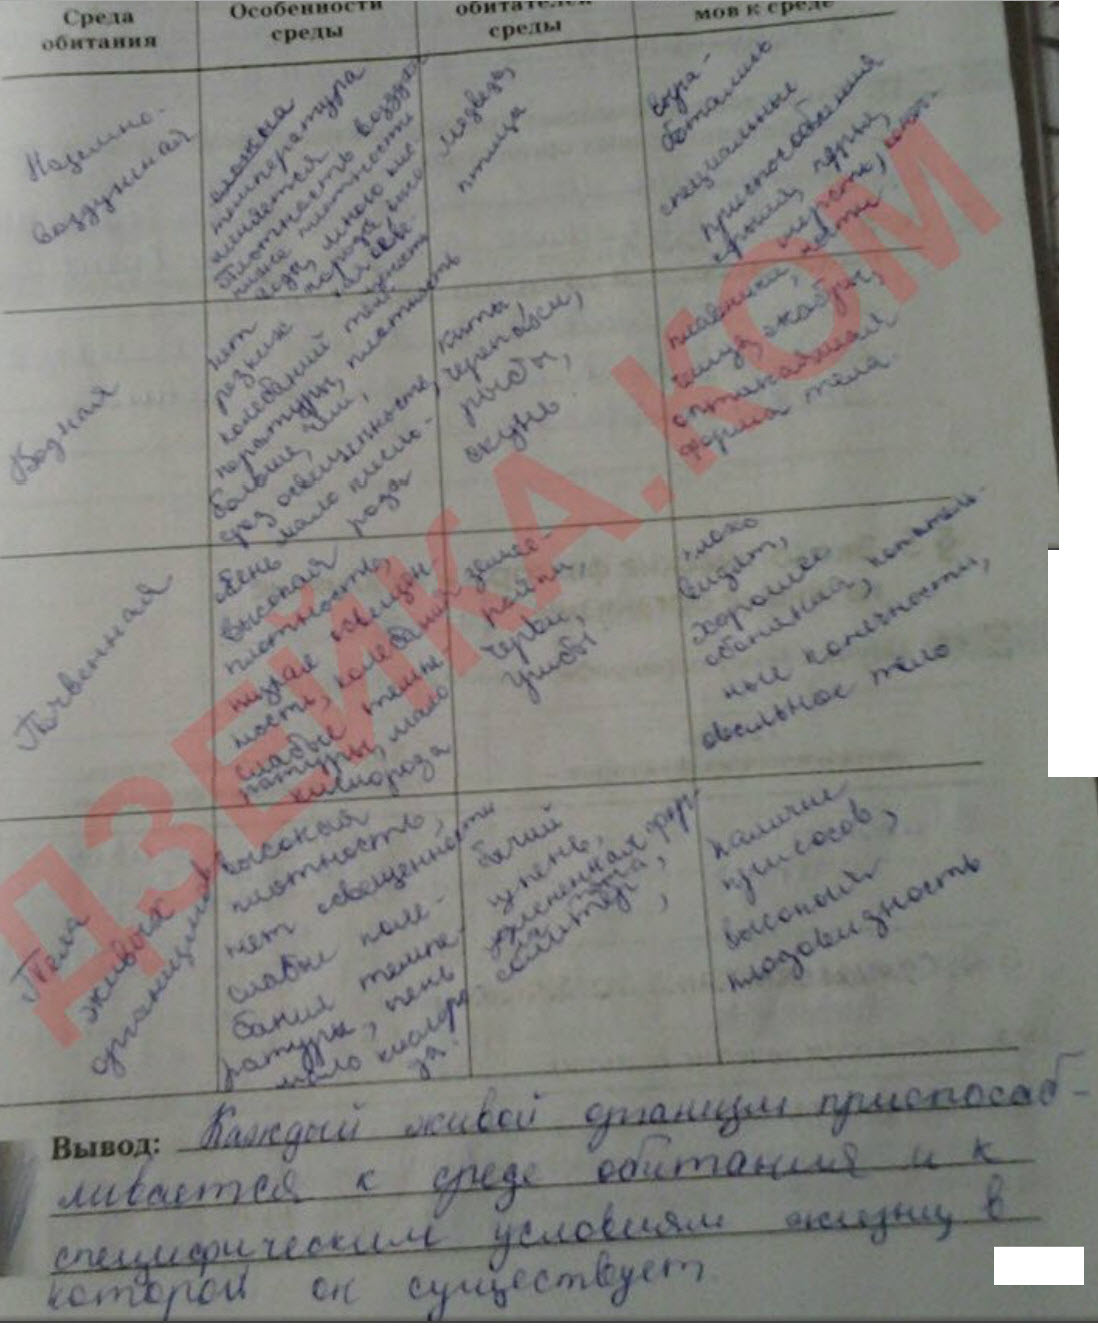 Среда
обитания
Особенности
среды
обитателей
среды
мов к среде
Наземно-
воздушная
температура
меняется
плотность воздуха
ниже плотности
воды, много кис-
медведь,
птица
выра-
ботались
специальные
приспособления
крылья, перья,
шерсть, ког-
ти
Водная
нет
резких
колебаний тем-
пературы, плотность
больше, чем
без освещенности,
мало кисло-
рода
киты,
черепахи,
рыбы,
окунь
плавники,
чешуя, жабры,
обтекаемая
форма тела.
Почвенная
очень
высокая
плотность,
низкая освещен-
ность, колебания
слабые темпе-
ратуры, мало
кислорода
землеройки
черви,
грибы
плохо
видят,
хорошее
обоняние, копатель-
ные конечности,
овальное тело
Тела
живых
организмов
высокая
плотность,
нет освещенности
слабые коле-
бания темпе-
ратуры, очень
мало кислоро-
да.
бычий
цепень,
наличие
присосов,
высокая
плодовидность
Вывод: Каждый живой организм приспосаб-
ливается к среде обитания и к
специфическим условиям жизни, в
которой он существует.
ДЗЕЙКА.КОМ